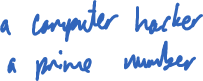 a computer hacker
a prime number